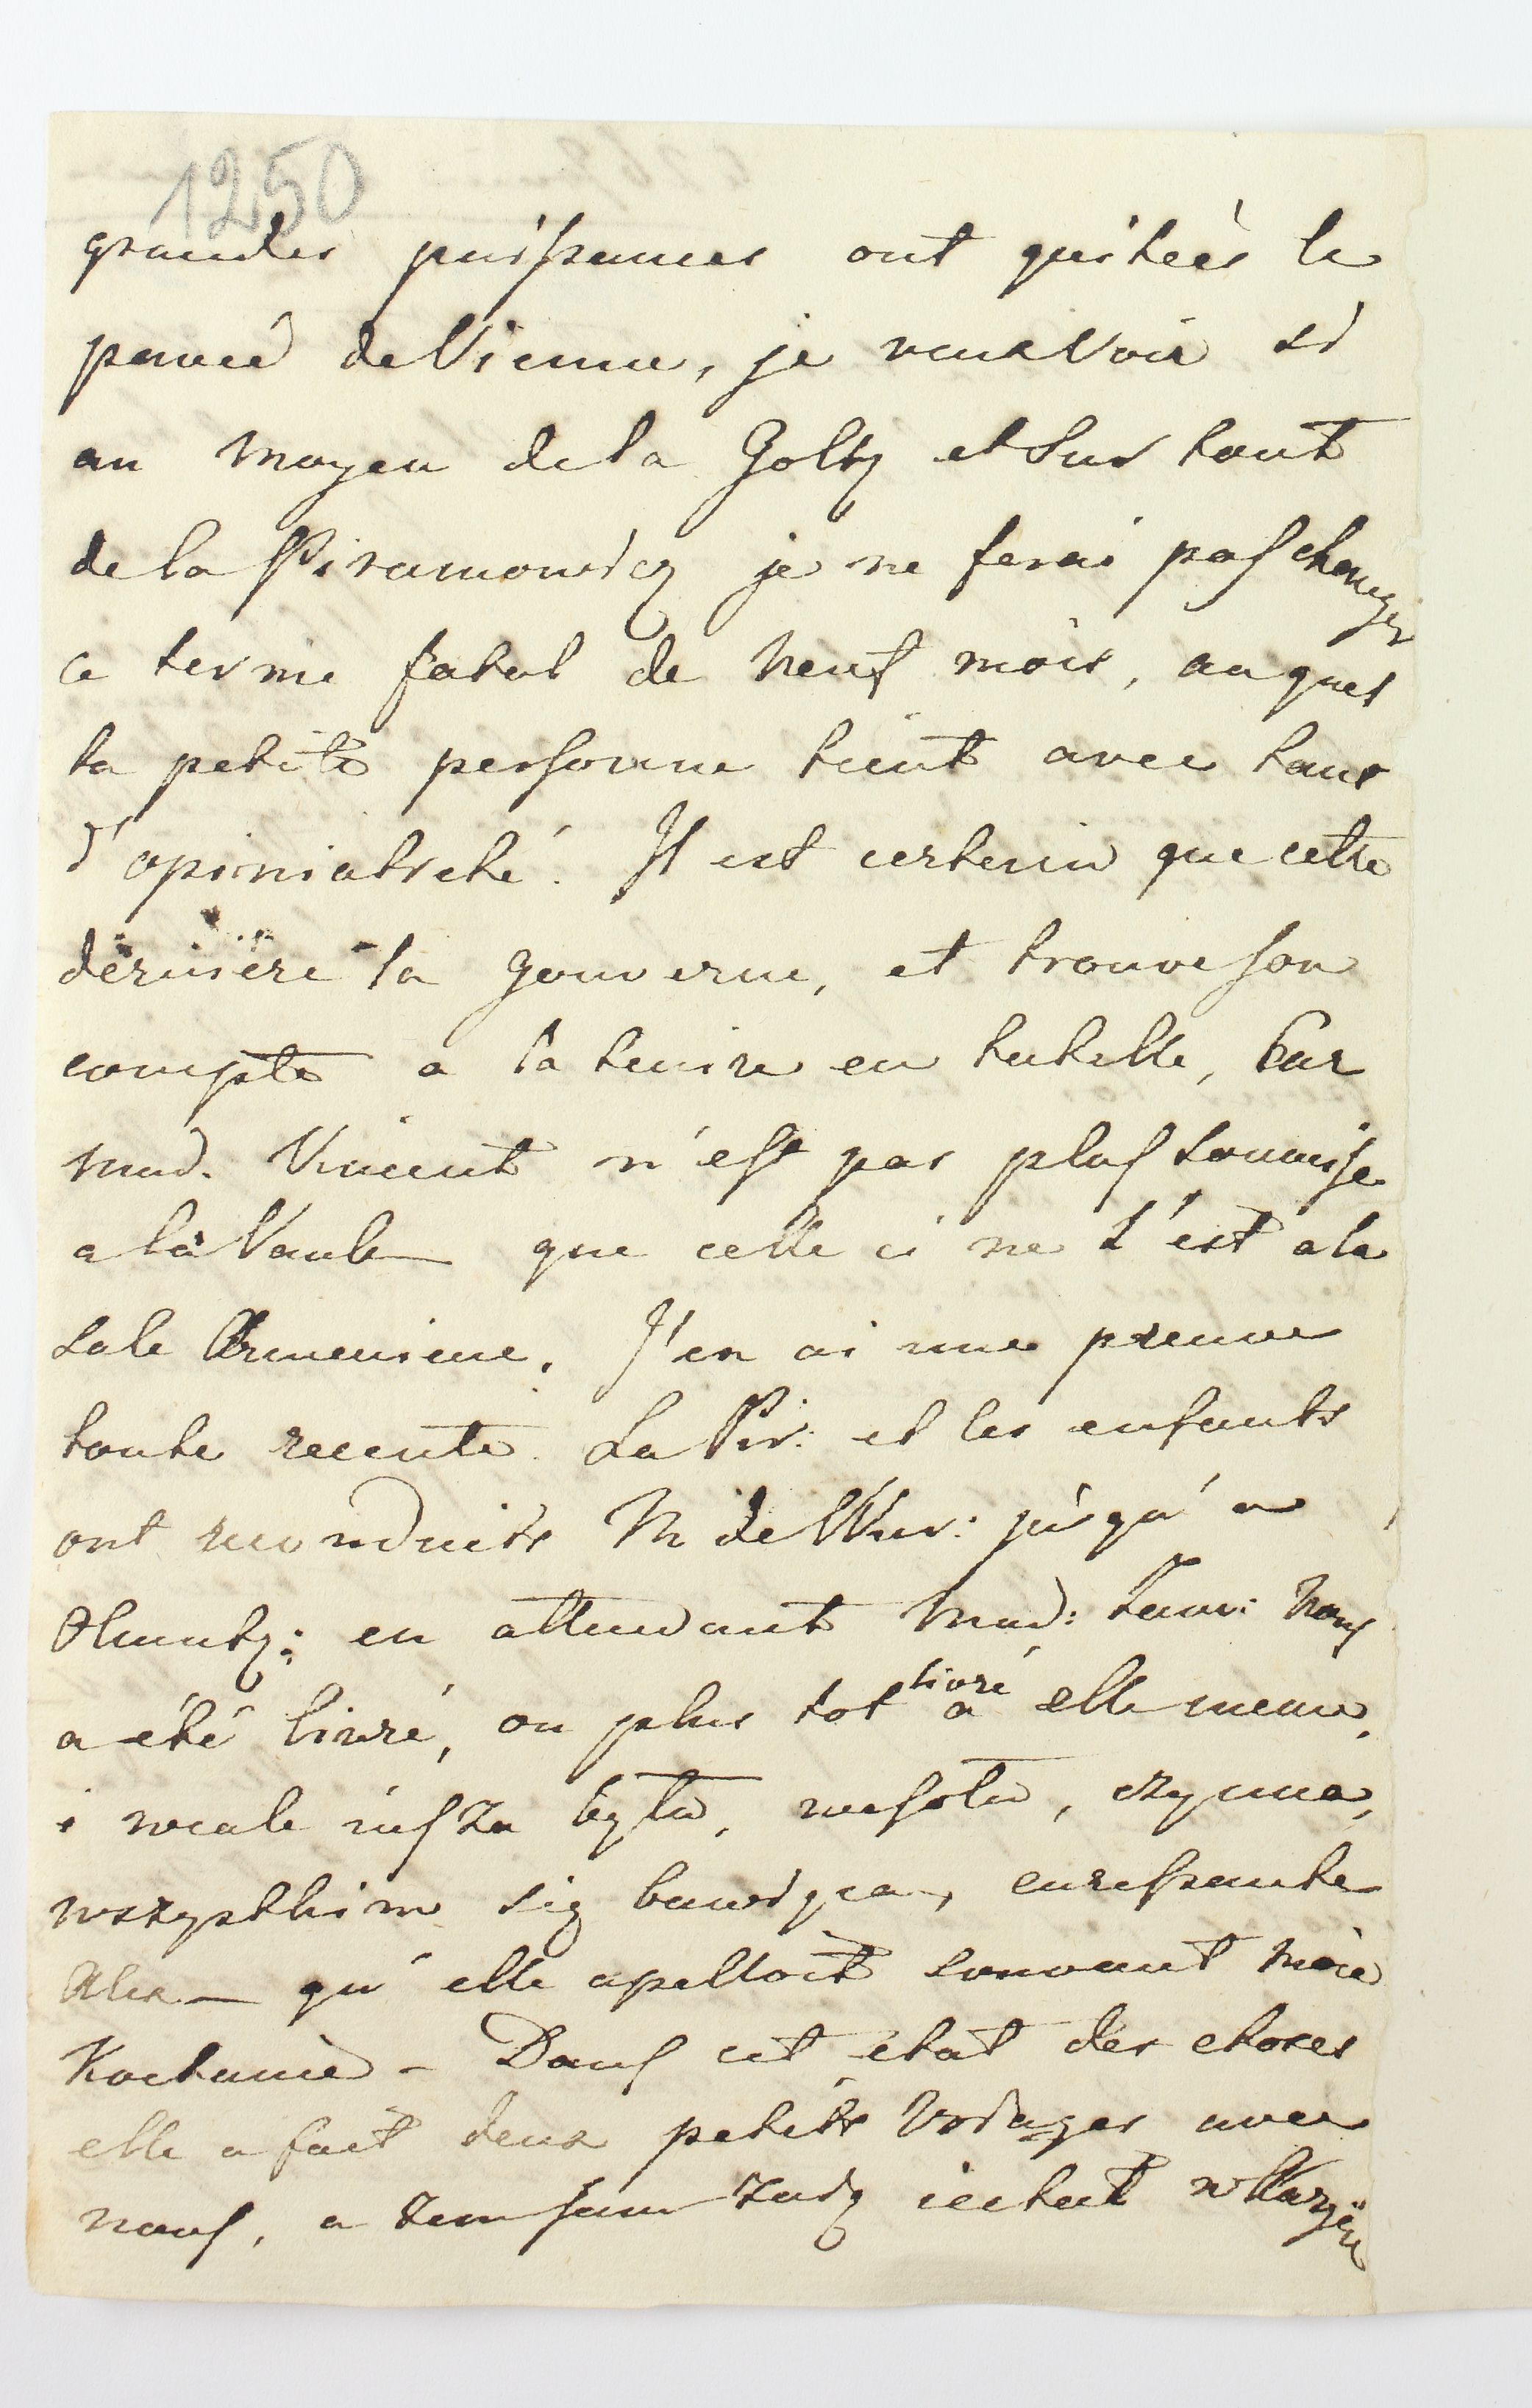 1250
grandes puissances ont quiteés le
pavveé de Vienne, je veux voir si
au moyen de la Goltz et sur tout
de la Piramowicz je ne ferai pas changer
ce terme fatal de neuf mois, auquel
la petite personne tient avec tant
d'opiniatreté. Il est certain que cette
dérnière la gouverne, et trouve son
compte a la tenire en tutelle, Car
mad. Vincent n'est pas plus soumise
a la Vaub— que celle ci ne l'est a la
sale Armeniene. J'en ai une preuve
toute recente. La Pir: et les enfants
ont reconduits M de Wur: jusqu'a
Olmutz: en attendant mad: nous
a été livré, ou plus tot livré a elle meme,
i wcale insza była, wesoła, czynna,
wszystkim się bawiąca, caressante
Alex— qu'elle apelloit souvent mõie
Kochanie - Dans cet etat des choses
elle a fait deux petits voiages avec
nous, a tam sam iechał w Karyiu